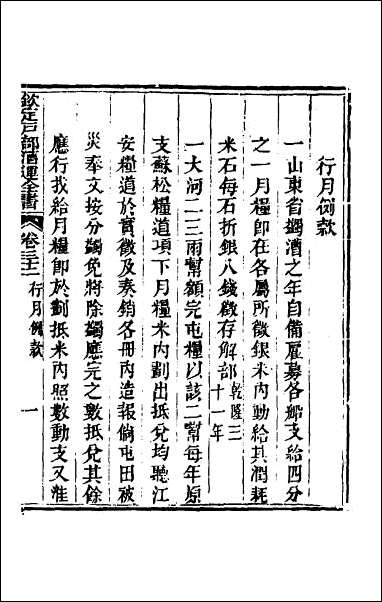 行月例款
一山東省蠲漕之年自備雇募各船支給四分
之一月糧卽在各屬所徵銀米內動給其潤耗
米石每石折銀八錢徵存解部乾隆三十一年
一大河二三兩幫額完屯糧以該二幫每年原
支蘇松糧道項下月糧米內劃出抵兌均聽江
安糧道於實徵及奏銷各冊內造報倘屯田被
災奉文按分蠲免將除蠲應完之數抵兌其餘
應行找給月糧卽於劃抵米內照數動支又淮
欽定戶部漕運全書
卷三十二
行月例款
一